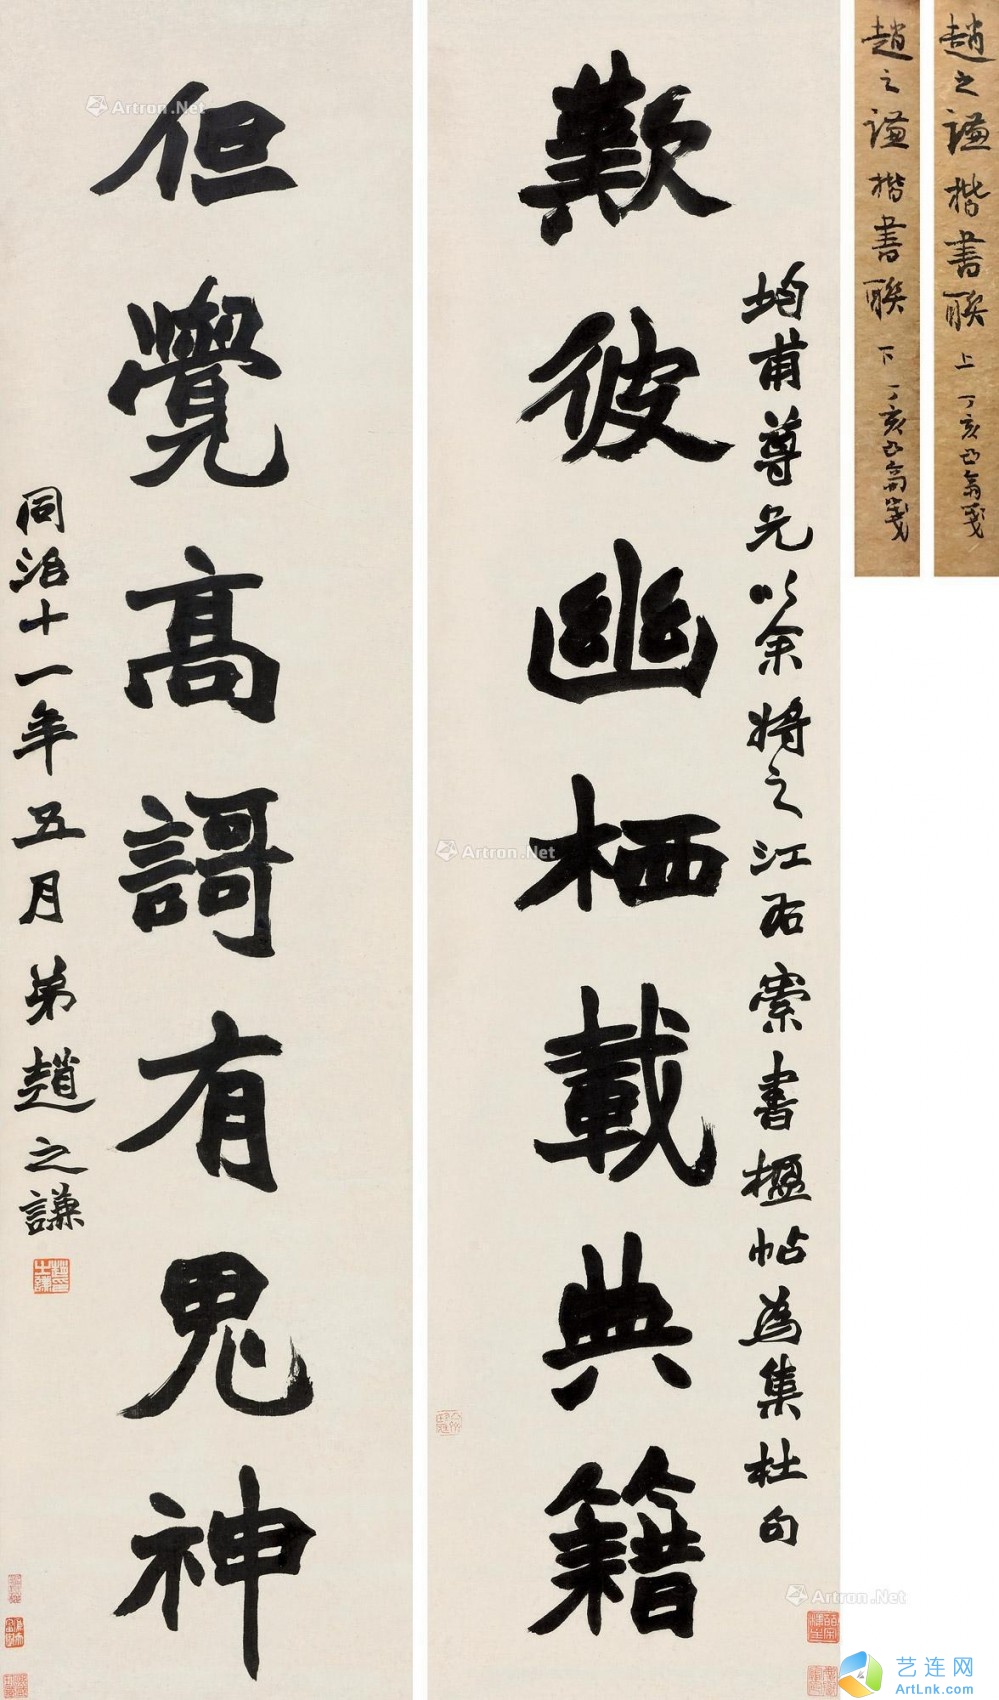 趙之謙楷書聯 上 丁亥 翁箋
趙之謙楷書聯 下 丁亥 翁箋
均甫尊兄以余將之江右索書楹帖為集杜句
歎彼幽栖載典籍
但覺高謌有鬼神
同治十一年五月弟趙之謙
Artron.Net
Artron.Net
Artron.Net
艺连网
ArtLnk.com